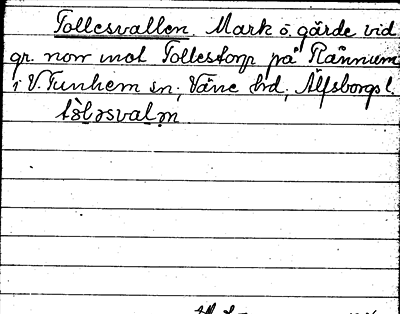 Tollesvallen. Mark o. gärde vid
gr. norr mot Tollestorp på Rånnum
i V. Tunhem sn, Väne hrd, Älfsborgs l.